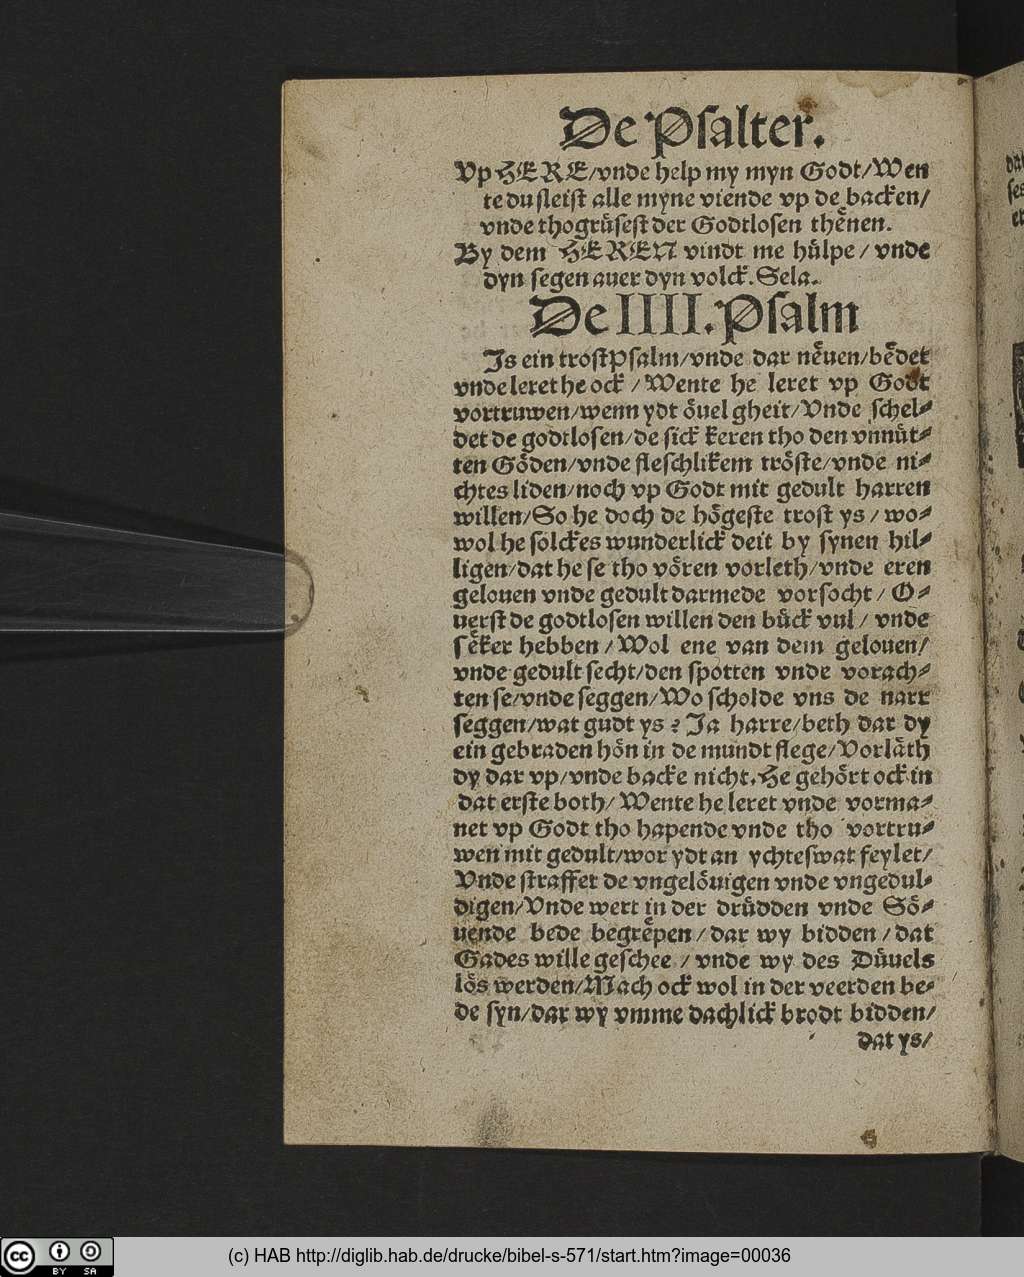 De Psalter.
Vp HERE/vnde help my myn Godt/Wen
te du sleist alle myne viende vp de backen/
vnde thogrüsest der Godtlosen thenen.
By dem HEREN vindt me hülpe/ vnde
dyn segen auer dyn volck. Sela.
De IIII. Psalm
Js ein trostPsalm/vnde dar neuen/bedet
vnde leret he ock / Wente he leret vp Godt
vortruwen/wenn ydt öuel gheit/Vnde schel-
det de godtlosen/de sick keren tho den vnnüt-
ten Göden/vnde fleschlikem tröste/vnde ni-
chtes liden/noch vp Godt mit gedult harren
willen/So he doch de högeste trost ys / wo-
wol he sölckes wunderlick deit by synen hil-
ligen/dat he se tho vören vorleth/vnde eren
gelouen vnde gedult darmede vorsocht / O-
uerst de godtlosen willen den bück vul/ vnde
seker hebben / Wol ene van dem gelouen/
vnde gedult secht/den spotten vnde vorach-
ten se/vnde seggen/Wo scholde vns de narr
seggen/wat gudt ys? Ja harre/beth dar dy
ein gebraden hön in de mundt flege/Vorläth
dy dar vp/vnde backe nicht. He gehört ock in
dat erste both/ Wente he leret vnde vorma-
net vp Godt tho hapende vnde tho vortru-
wen mit gedult/wor ydt an ychteswat feylet/
Vnde straffet de vngelöuigen vnde vngedul-
digen/Vnde wert in der drüdden vnde Sö-
uende bede begrepen/dar wy bidden/dat
Gades wille geschee / vnde wy des Düuels
lös werden/Mach ock wol in der veerden be-
de syn/dar wy vmme dachlick brodt bidden/
dat ys/
(c) HAB http://diglib.hab.de/drucke/bibel-s-571/start.htm?image=00036
cc BY SA